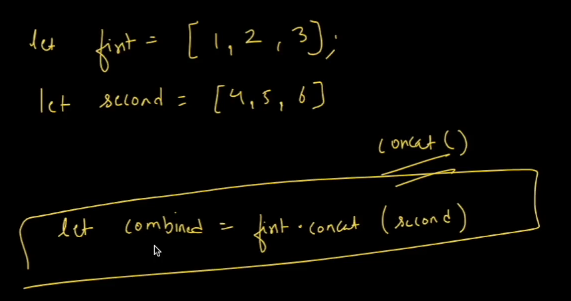 let first = [1, 2, 3];
let second = [4, 5, 6]
concat()
let combined = first.concat (second)